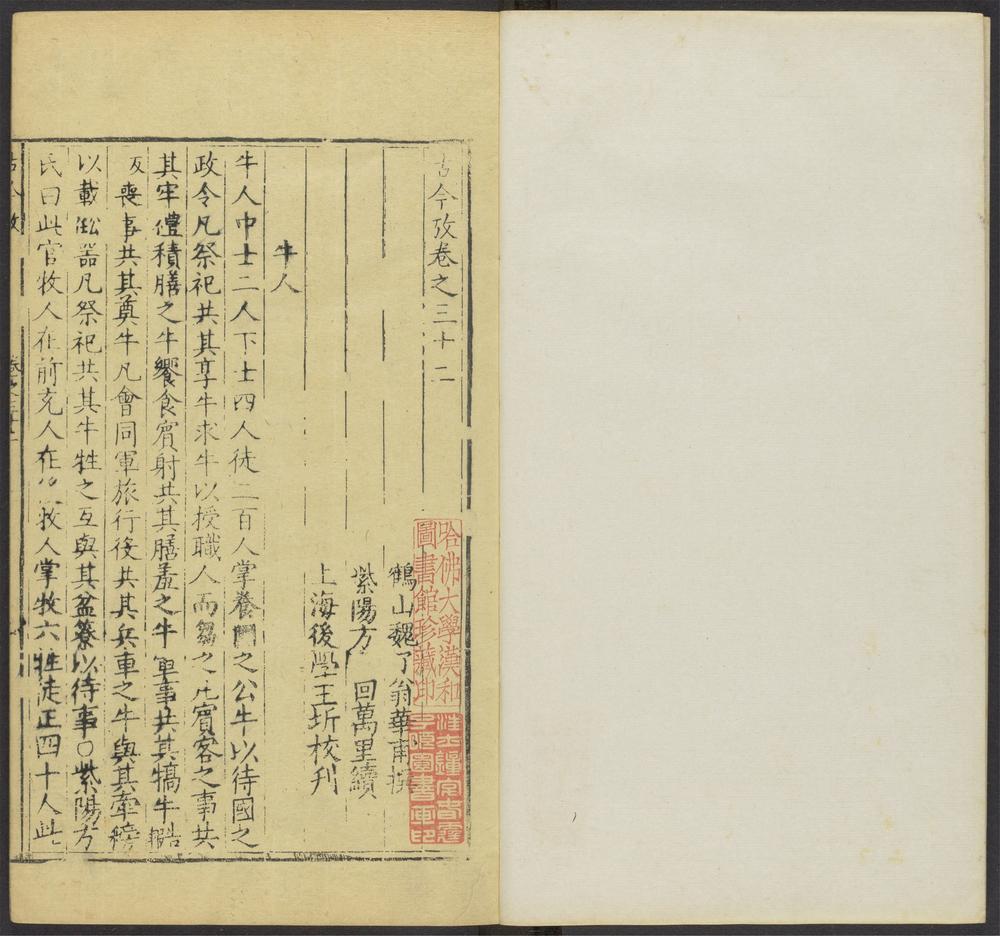 古今攷卷之三十二
鶴山魏了翁華甫撰
紫陽方 回萬里續
上海後學王圻校刋
牛人
牛人中士二人下士四人徒二百人掌養國之公牛以待國之
政令凡祭祀共其享牛求牛以授職人而芻之凡賓客之事共
其牢禮積膳之牛饗食賓射共其膳羞之牛軍事共其犒牛
反喪事共其奠牛凡會同軍旅行役共其兵車之牛與其牽徬
以載公器凡祭祀共其牛牲之互與其盆簝以待事○紫陽方
氏曰此官牧人在前充人在 牧人掌牧六牲徒正四十人此
古今攷
哈佛大學漢和
圖書館珍藏印